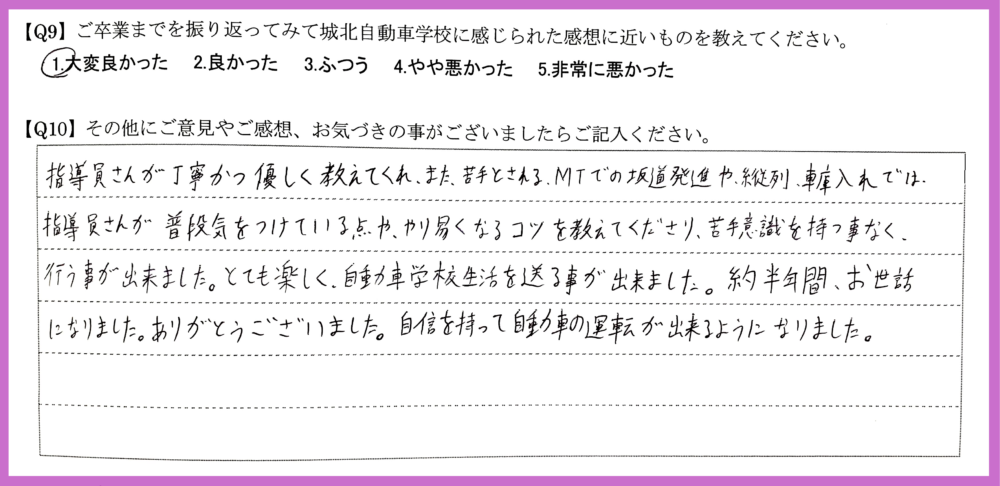 【Q9】ご卒業までを振り返ってみて城北自動車学校に感じられた感想に近いものを教えてください。
1.大変良かった 2.良かった 3.ふつう 4.やや悪かった 5.非常に悪かった
【Q10】その他にご意見やご感想、お気づきの事がございましたらご記入ください。
指導員さんが丁寧かつ優しく教えてくれ、また、苦手とされる、MTでの坂道発進や、縦列、車庫入れでは、
指導員さんが普段気をつけている点や、やり易くなるコツを教えてくださり、苦手意識を持つ事なく、
行う事が出来ました。とても楽しく、自動車学校生活を送る事が出来ました。約半年間、お世話
になりました。ありがとうございました。自信を持って自動車の運転が出来るようになりました。